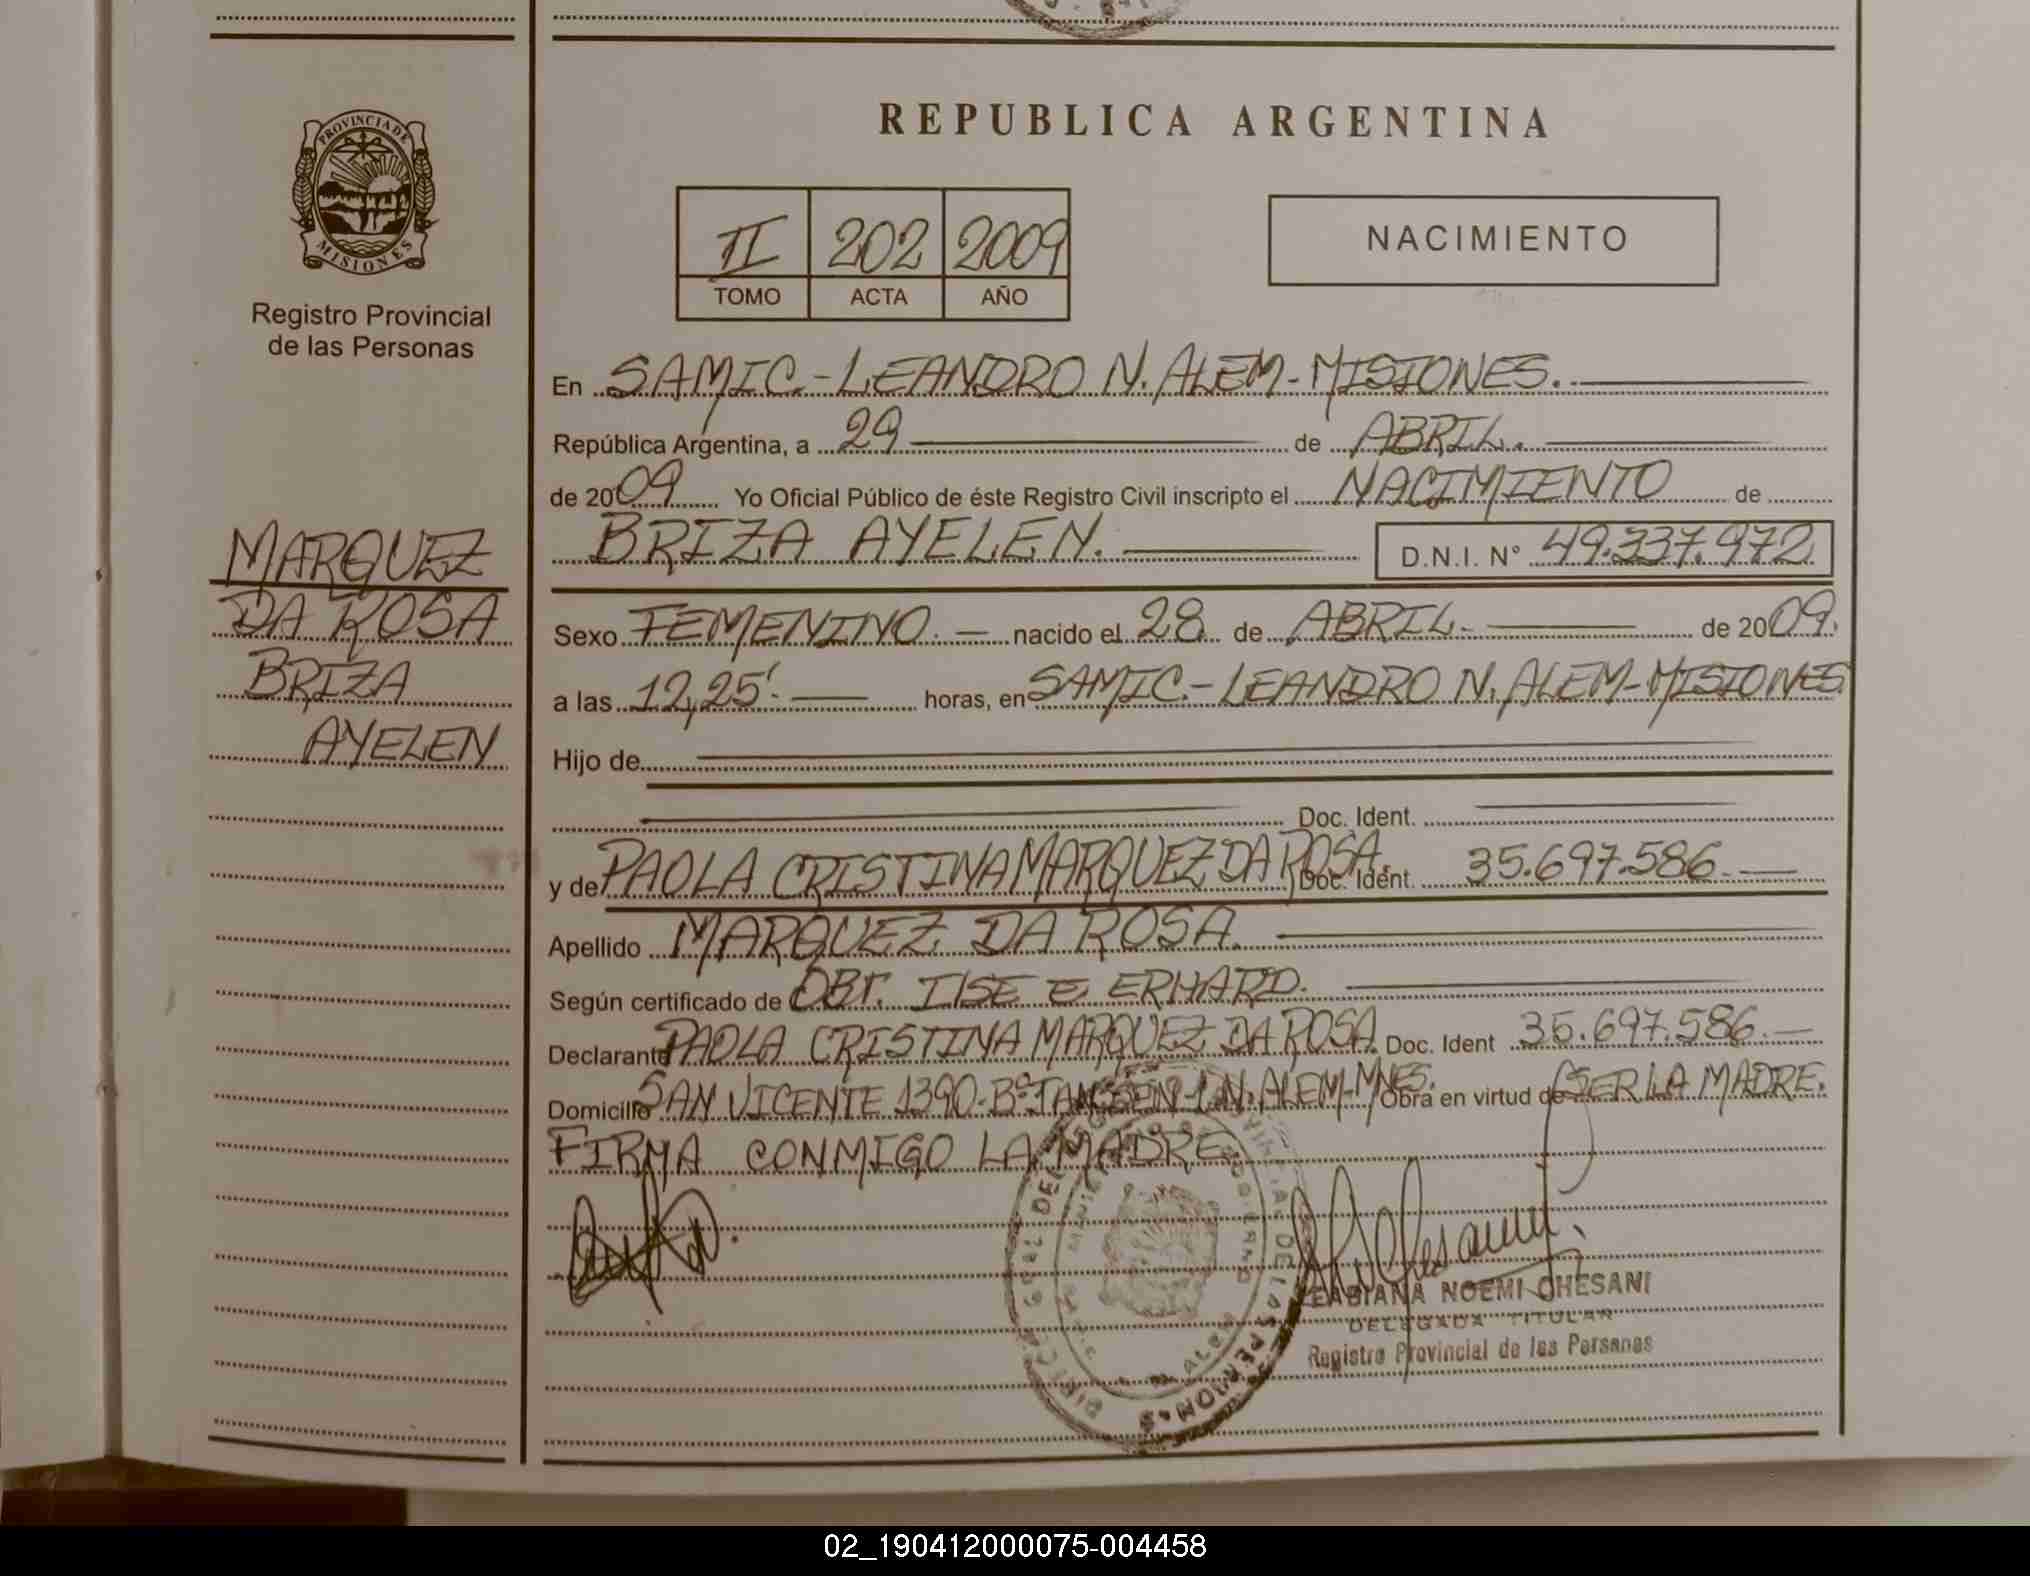 REPUBLICA ARGENTINA
PROVINCIA DE
MISIONES
Registro Provincial
de las Personas
II 202 2009
TOMO ACTA AÑO
NACIMIENTO
En SAMIC - LEANDRO N. ALEM - MISIONES.
República Argentina, a 29 de ABRIL.
de 2009 Yo Oficial Público de éste Registro Civil inscripto el NACIMIENTO de
BRIZA AYELEN. D.N.I. N° 49.337.972
MARQUEZ
DA ROSA
BRIZA
AYELEN
Sexo FEMENINO. nacido el 28 de ABRIL. de 2009.
a las 12,25'. horas, en SAMIC. - LEANDRO N. ALEM - MISIONES.
Hijo de
Doc. Ident.
y de PAOLA CRISTINA MARQUEZ DA ROSA. Doc. Ident. 35.697.586.
Apellido MARQUEZ DA ROSA.
Según certificado de OBT. ILSE E ERHARD.
Declarante PAOLA CRISTINA MARQUEZ DA ROSA. Doc. Ident 35.697.586.
Domicilio SAN VICENTE 1390 - B° - L.N. ALEM - MNES. Obra en virtud de SER LA MADRE.
FIRMA CONMIGO LA MADRE.
FABIANA NOEMI CHESANI
DELEGADA TITULAR
Registro Provincial de las Personas
02_190412000075-004458